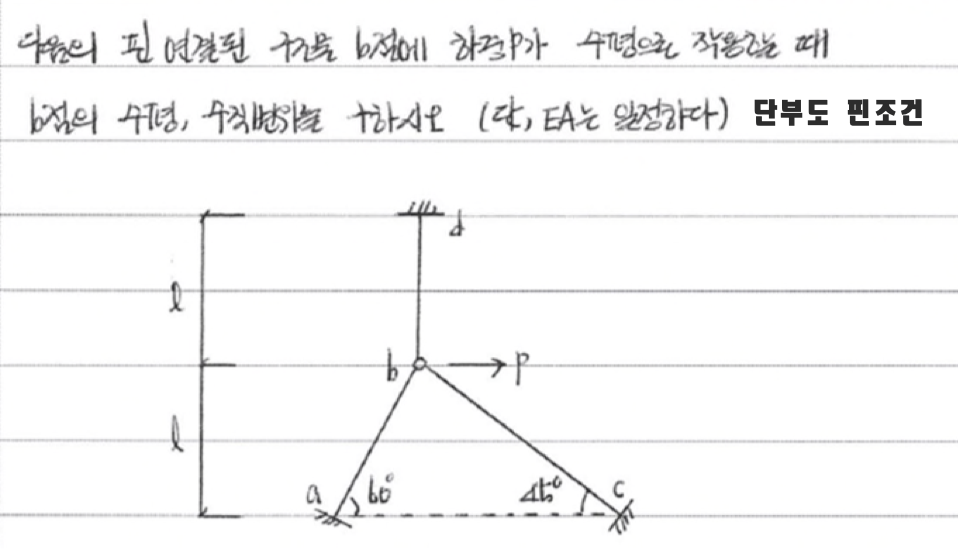 다음의 핀 연결된 구조물 b점에 하중P가 수평으로 작용하는 때
b점의 수평, 수직변위를 구하시오 (단, EA는 일정하다) 단부도 핀조건
d
l
b P
l
a 60° 45° c